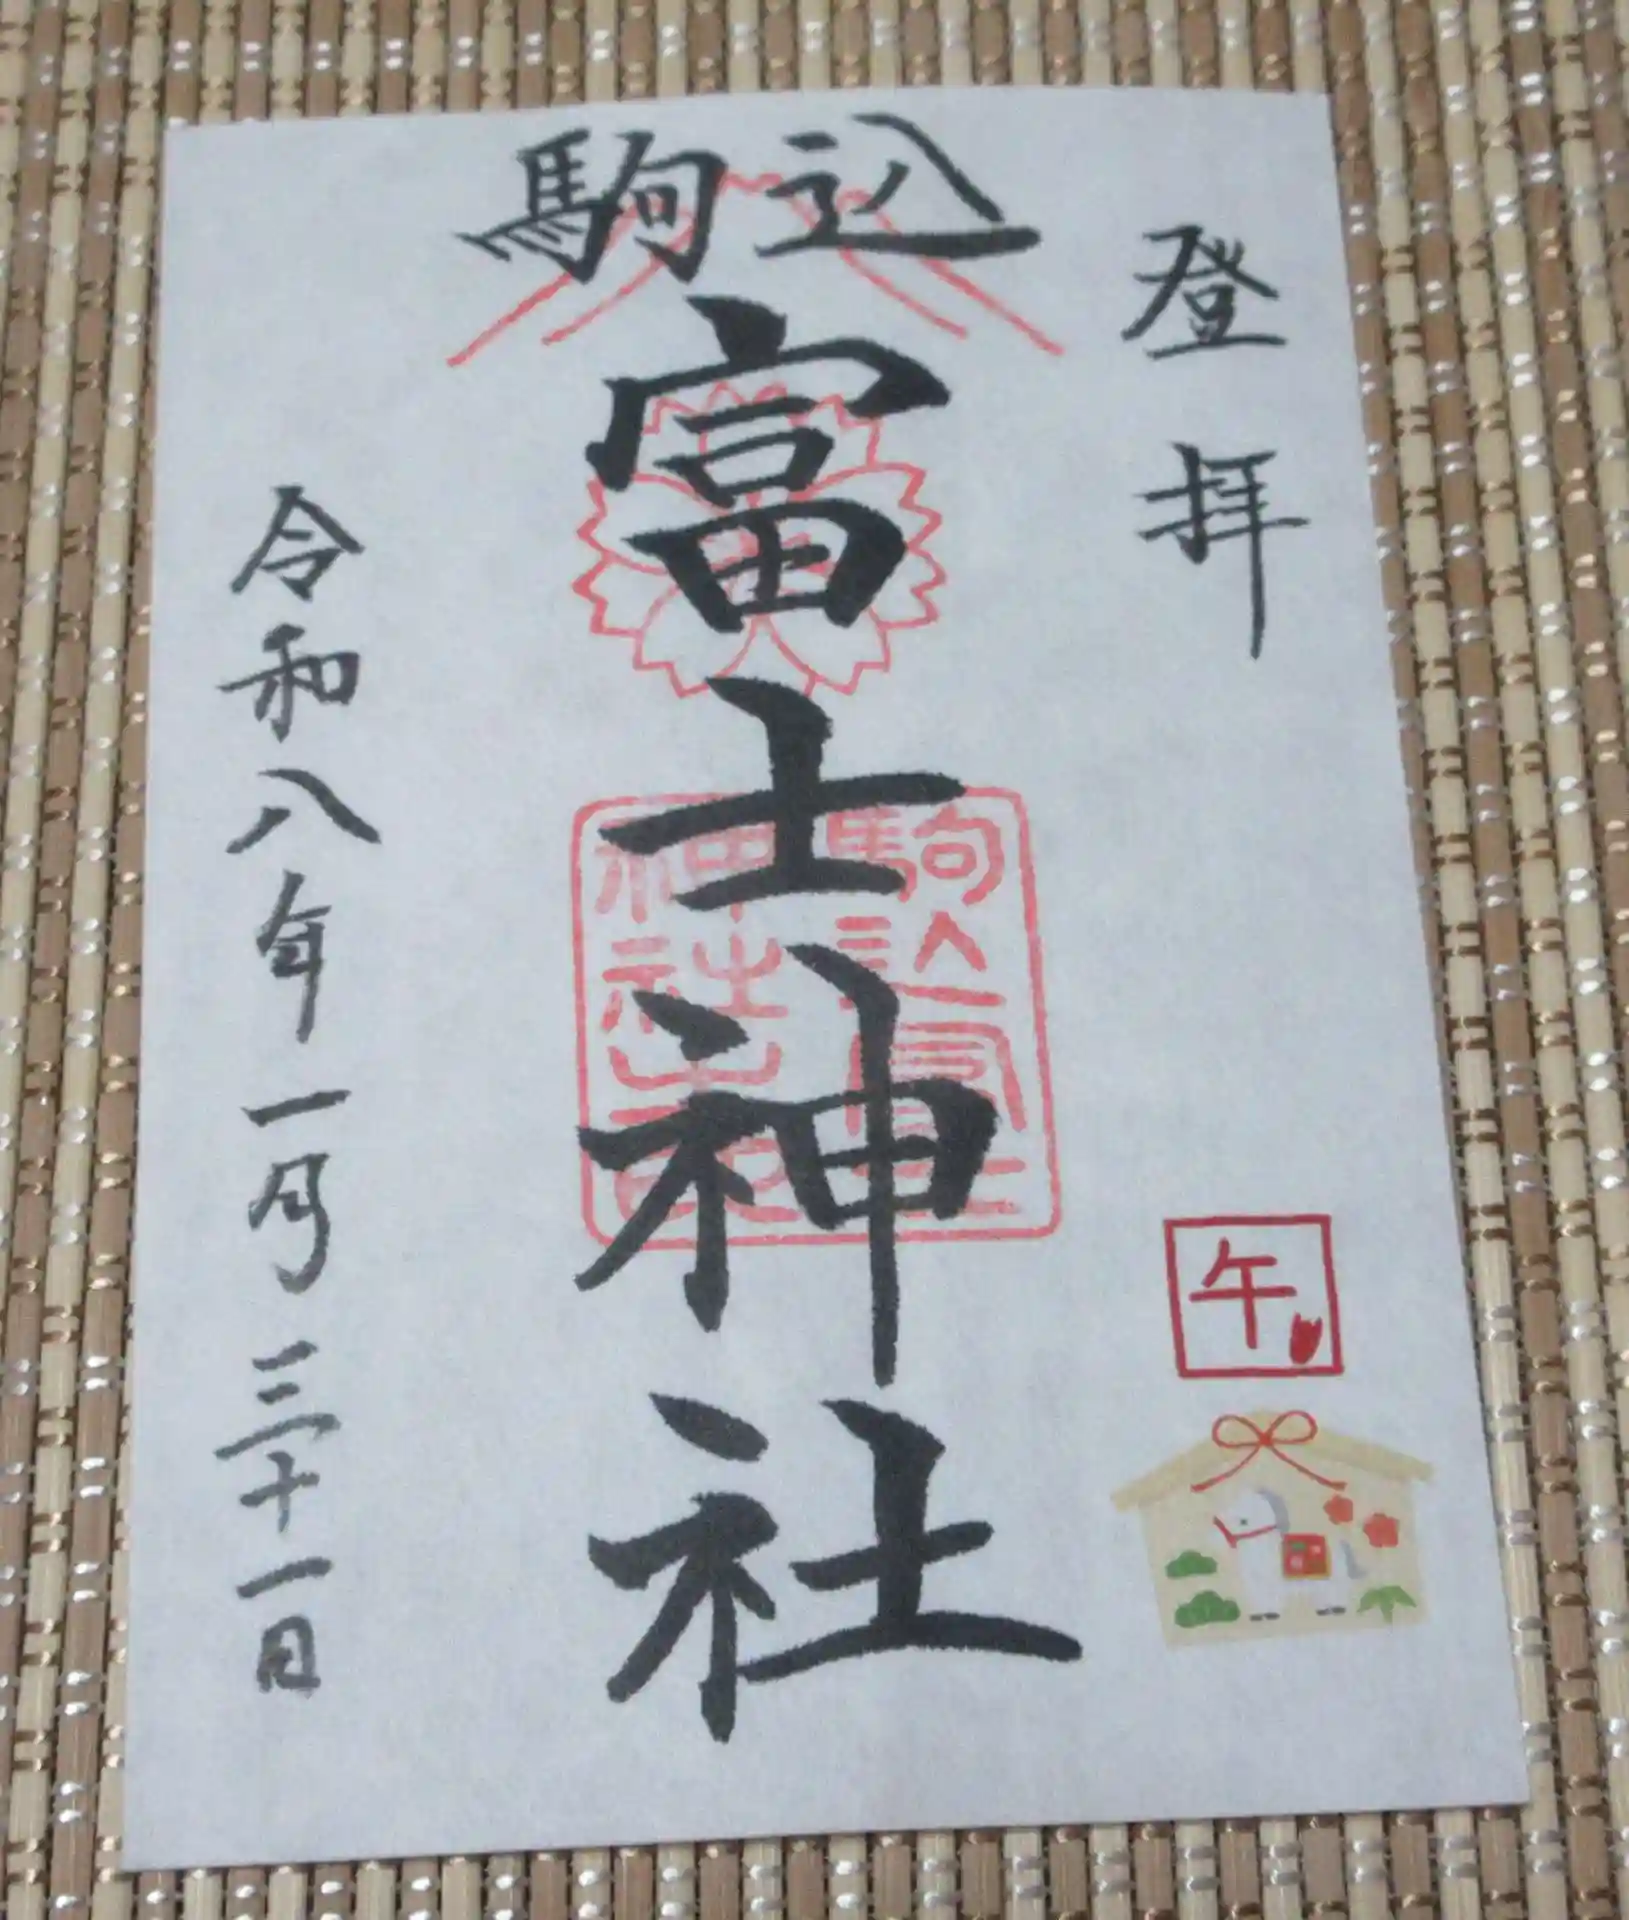 登拝
駒込
富士神社
令和八年一月三十一日
午
駒込富士
神社